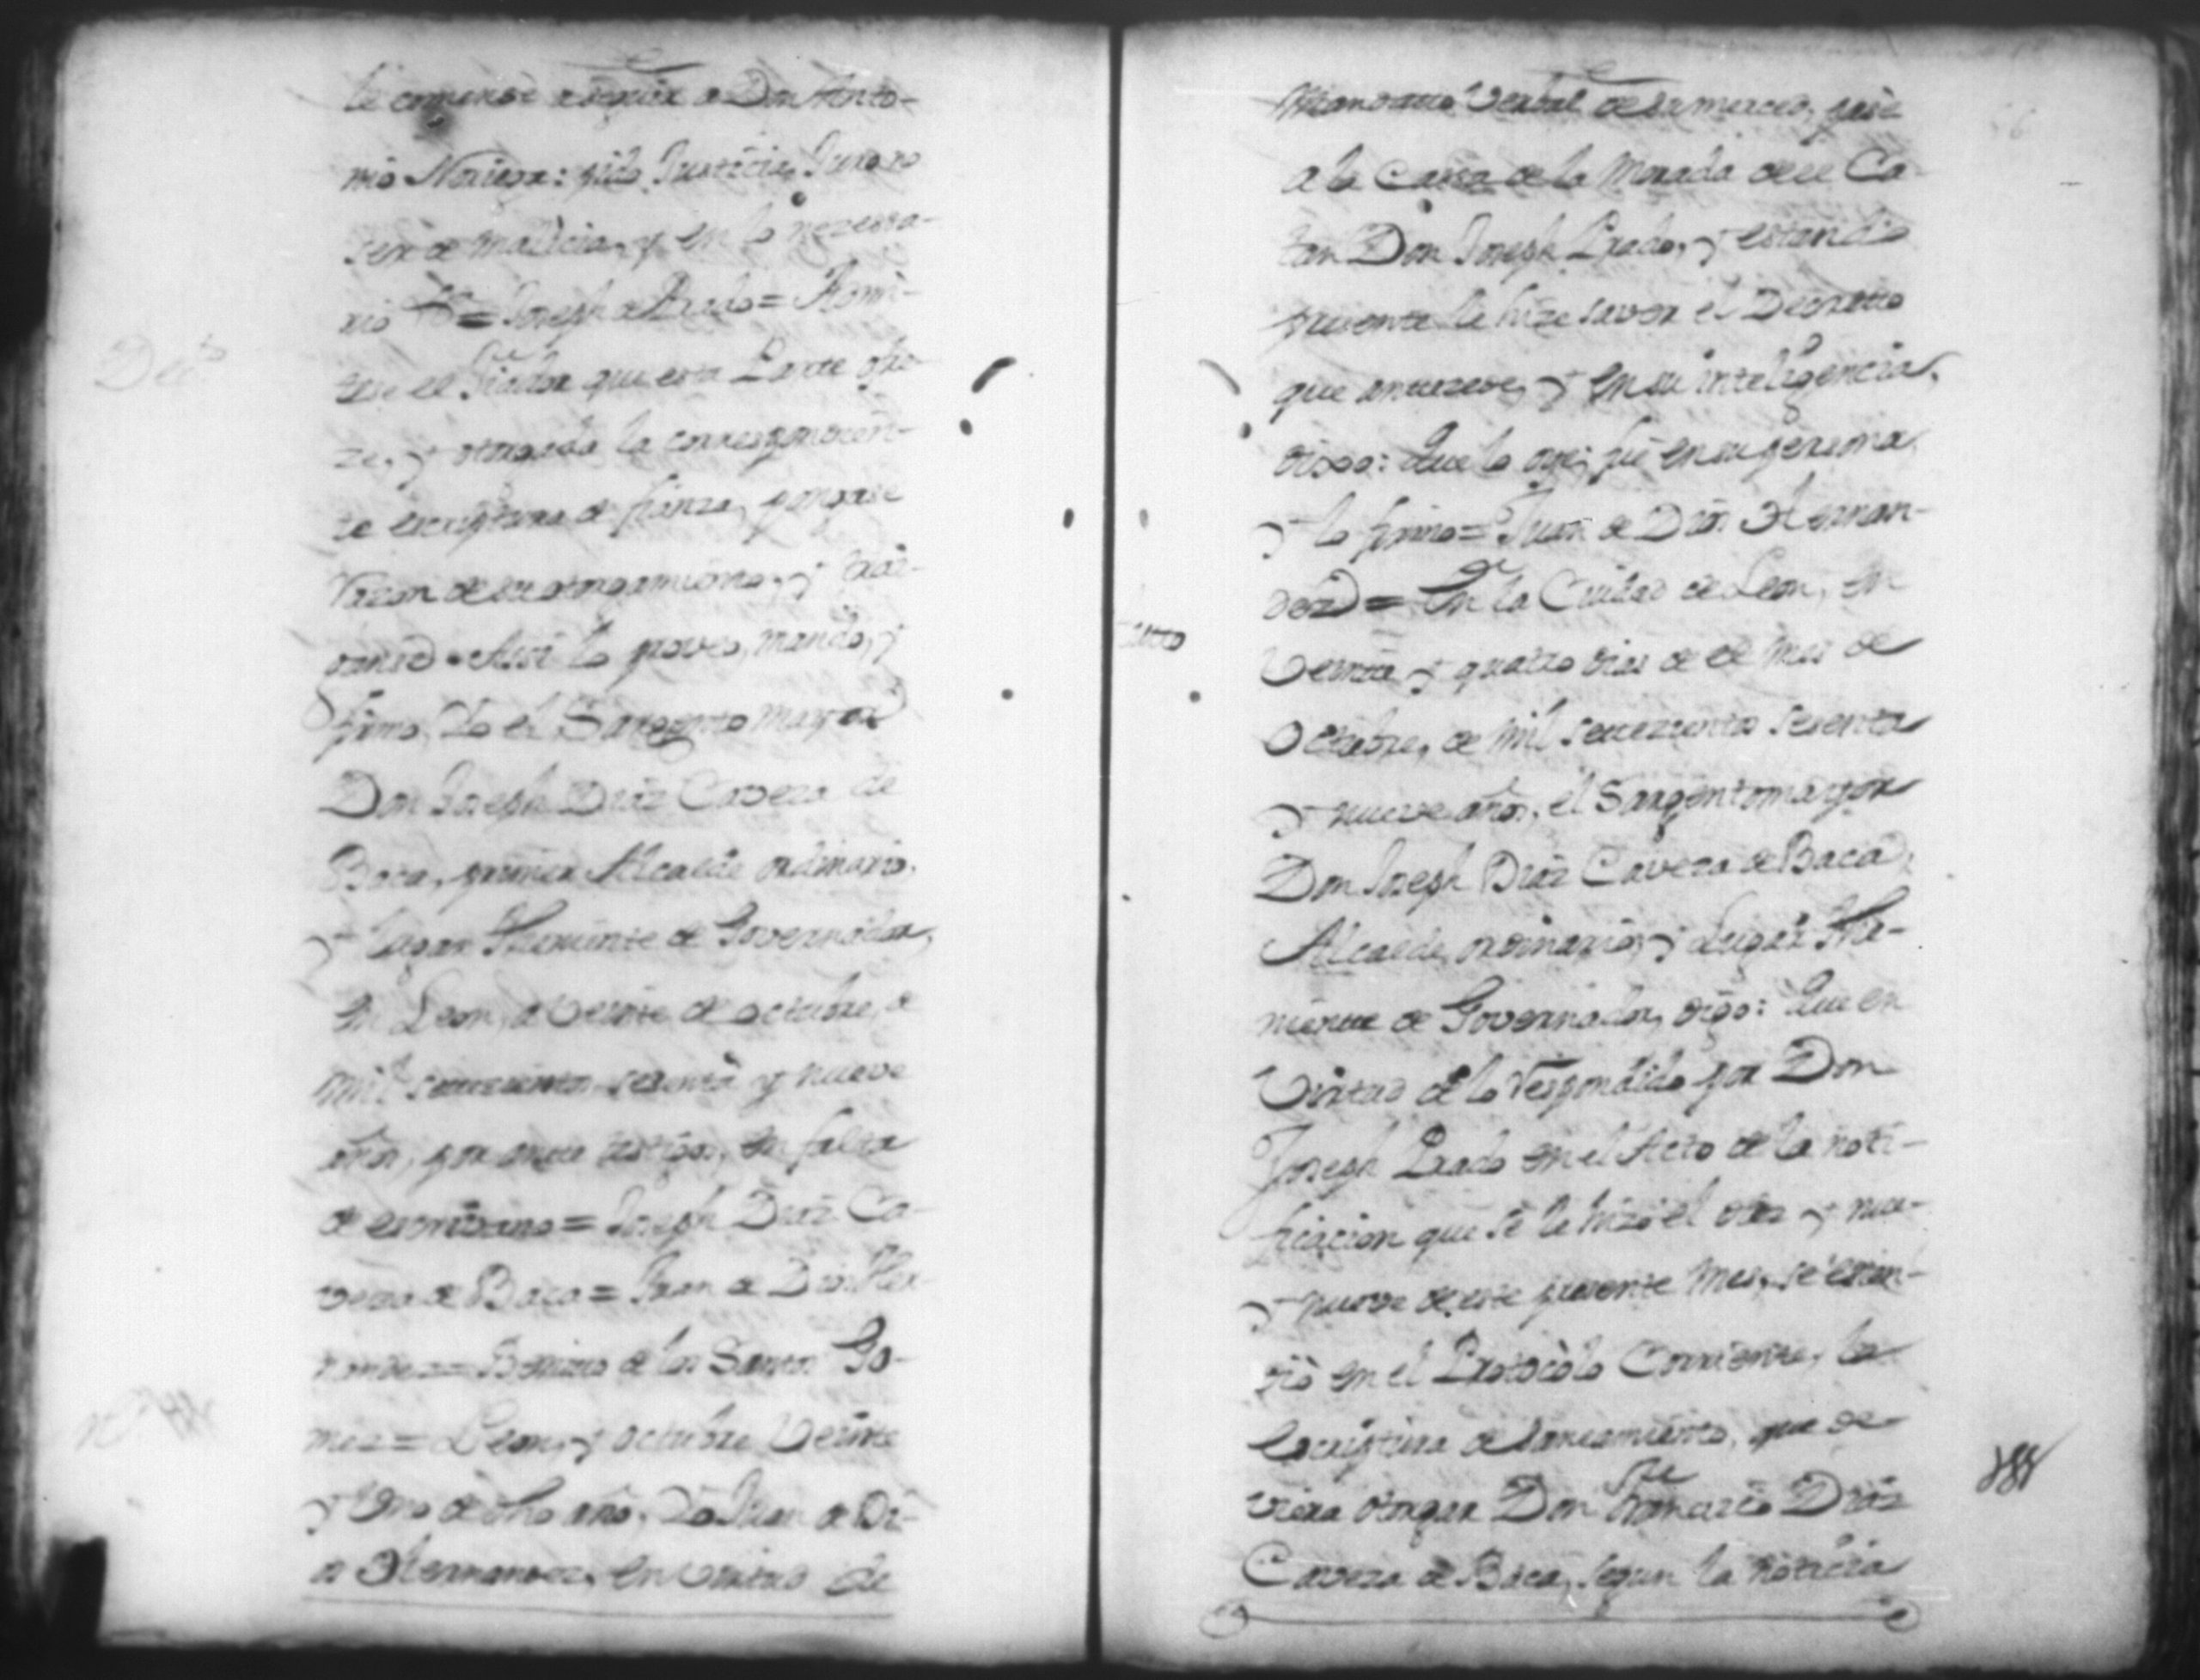 le comense a seguir a Don Anto-
nio Noriega: pido Justicia, Juro no
ser de malicia, y en lo nezessa-
rio &ª = Joseph de Prado = Admi-
tese el fiador que esta Parte ofre-
Dec.to
ze, y otorgada la correspondien-
te escriptura de fianza, pongase
razon de su otorgamiento, y
Assi lo proveo, mando, y
firmo, Yo el Sargento mayor
Don Joseph Diaz Caveza de
Baca, primer Alcalde ordinario,
y lugar Theniente de Governador,
en Leon, a veinte de octubre, de
mil setezientos sesenta y nueve
años, por ante testigos, en falta
de escrivano = Joseph Diaz Ca-
veza de Baca = Juan de Dios Her-
nandez = Benitto de los Santos Go-
mez = Leon, y octubre Veinte
y Uno de dho año, Yo Juan de Di-
os Hernandez, en virtud de
mandatto Verbal de su merced, pasè
a la Cassa de la Morada de el Ca-
tan Don Joseph Prado, y estando
presente le hize saver el Decretto
que antezede, y en su inteligencia,
dixo: Que lo oye, fuè en su persona,
y lo firmo = Juan de Dios Hernan-
dez = En la Ciudad de Leon, en
Autto
Veinte y quatro dias de el mes de
Octubre, de mil setezientos sesenta
y nueve años, el Sargentomayor
Don Joseph Diaz Caveza de Baca,
Alcalde ordinario, y Lugar The-
niente de Governador, digo: Que en
Virtud de lo respondido por Don
Joseph Prado en el Acto de la noti-
ficacion que se le hizo el diez y nue-
y nueve de este presente mes, se
en el Protocòlo Corriente, la
Escriptura de saneamiento, que de-
viera otorgar Don Francisco Diaz
Caveza de Baca, segun la noticia